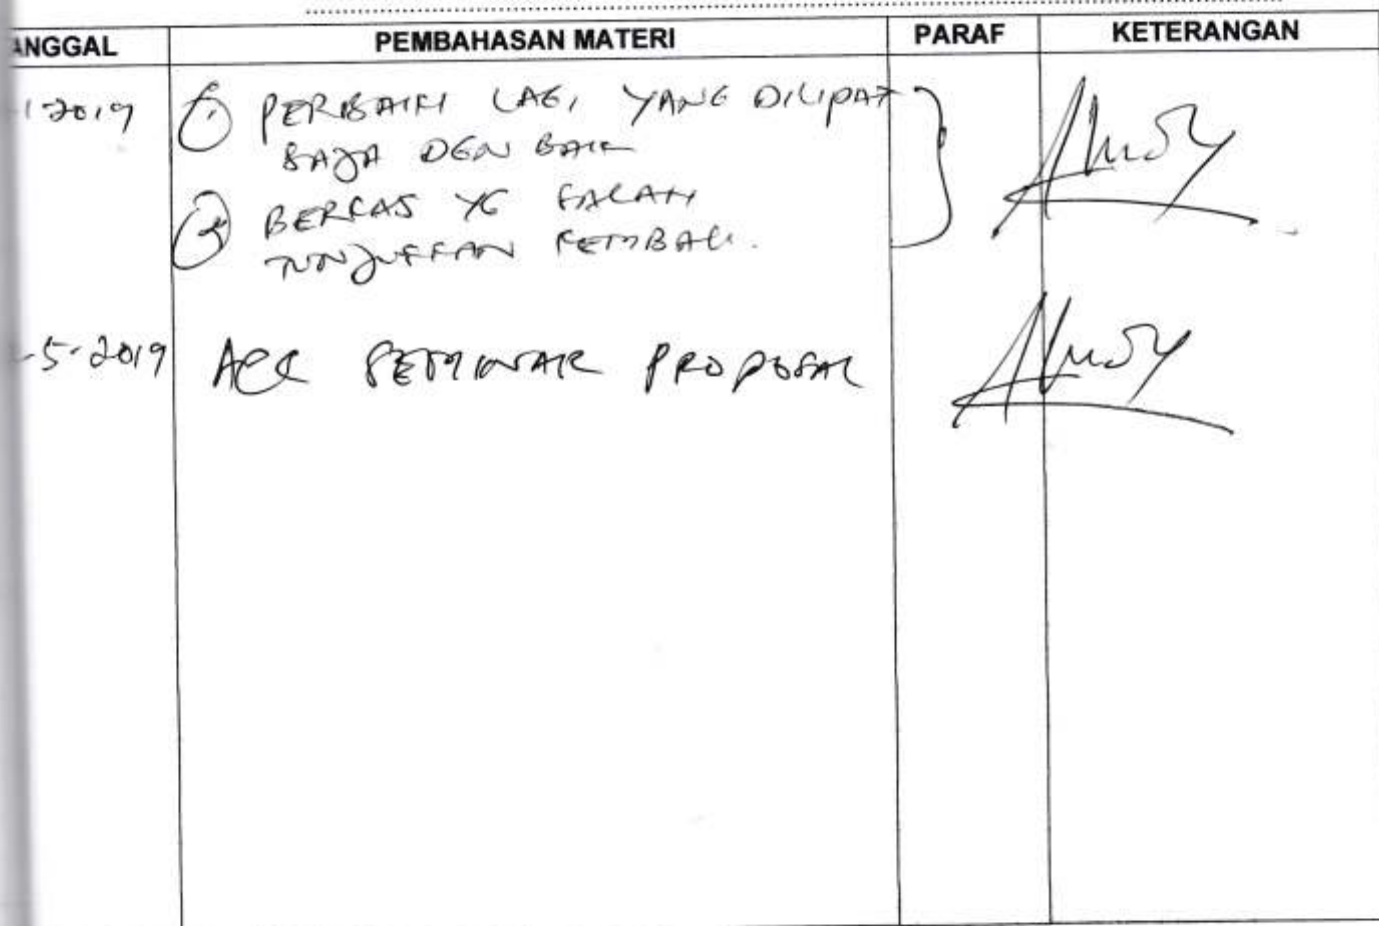 ANGGAL PEMBAHASAN MATERI PARAF KETERANGAN
1-2019 ① PERBAIKI LAGI YANG DILIPAT
SAJA DEN BAIK
② BERKAS YG SALAH
TUNJUKKAN KEMBALI.
-5-2019 ACC SEMINAR PROPOSAL